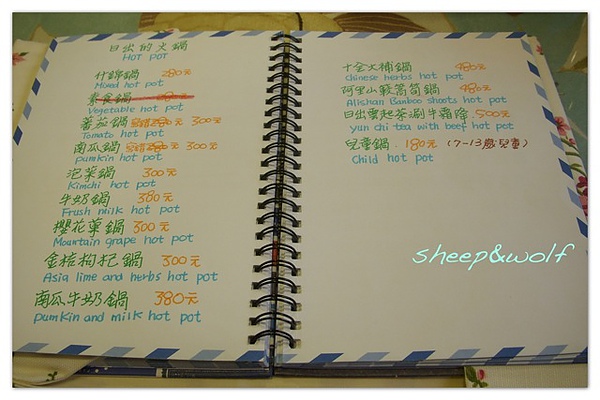 日出的火鍋
Hot pot
什錦鍋 280元
Mixed hot pot
素食鍋
Vegetable hot pot
番茄鍋 300元
Tomato hot pot
南瓜鍋 300元
pumkin hot pot
泡菜鍋 300元
Kimchi hot pot
牛奶鍋 380元
Frush milk hot pot
櫻花蕈鍋 300元
Mountain grape hot pot
金桔枸杞鍋 300元
Asia lime and herbs hot pot
南瓜牛奶鍋 380元
pumkin and milk hot pot
十全火補鍋 480元
Chinese herbs hot pot
阿里山 筍鍋 480元
Alishan Bamboo shoots hot pot
日出雲起茶涮牛霜降 500元
yun chi tea with beef hot pot
兒童鍋 180元 (7-13歲兒童)
Child hot pot
sheep&wolf